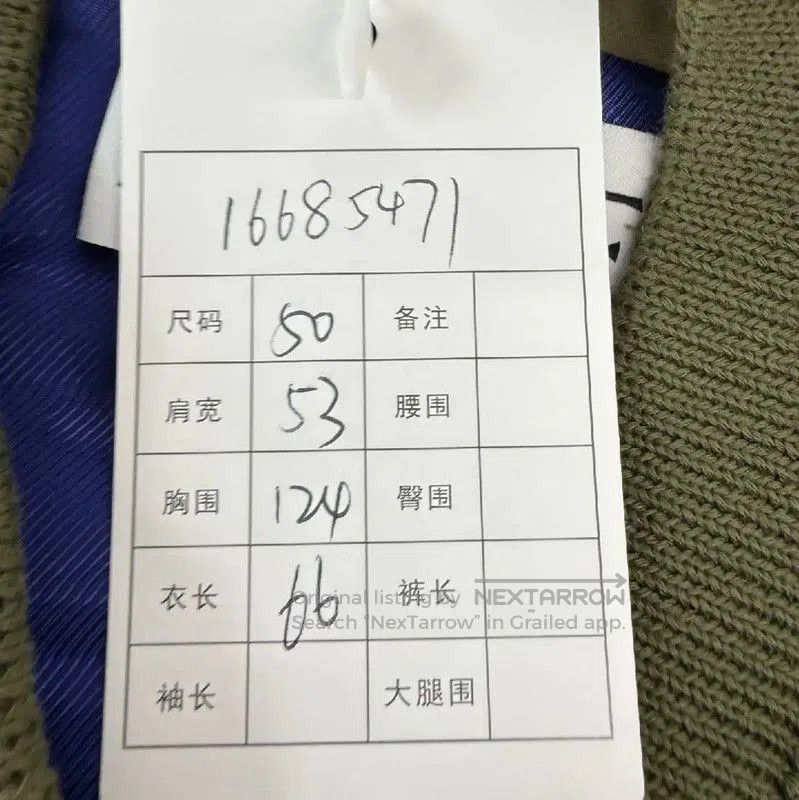 16685471
尺码 50 备注
肩宽 53 腰围
胸围 124 臀围
衣长 66 裤长
Original listing by NEXTARROW
Search "NexTarrow" in Grailed app.
袖长 大腿围